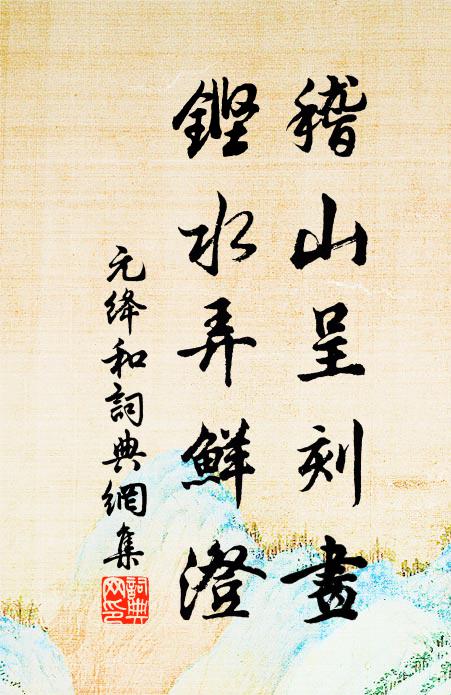 稽山呈刻畫
鏗水弄鮮澄
元绛和詞典網集
詞典